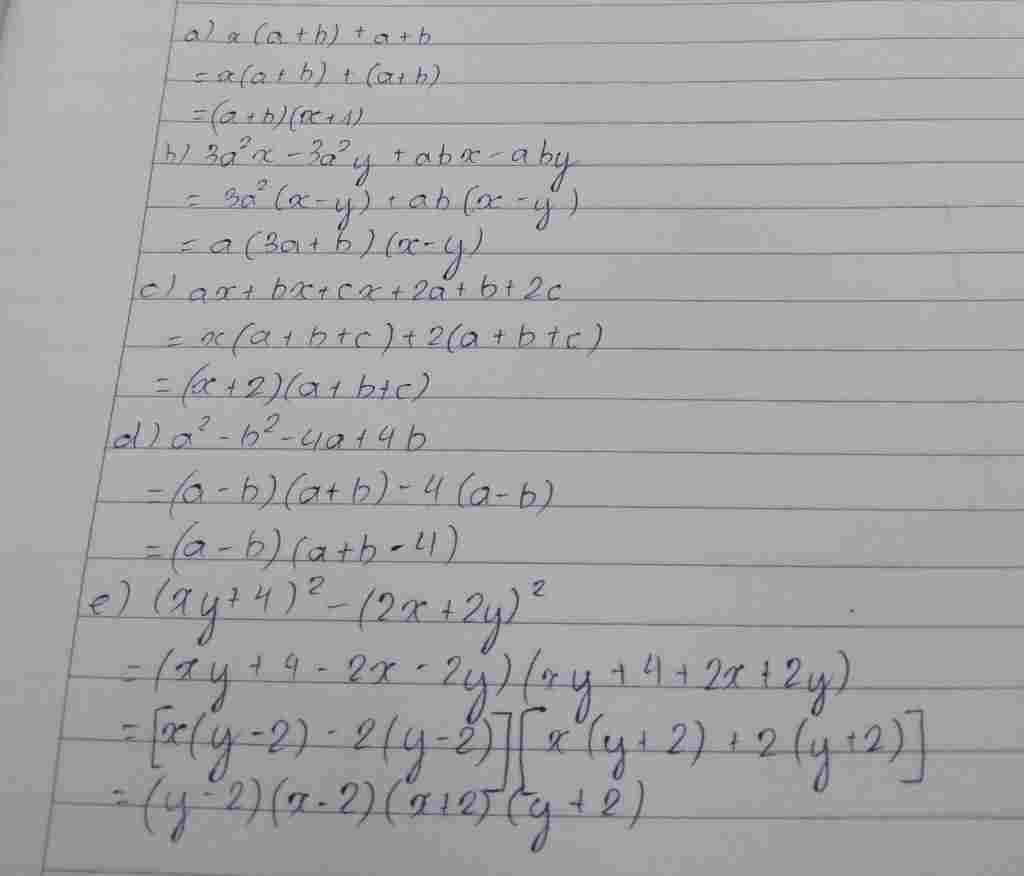 a) x(a+b) + a+b
= x(a+b) + (a+b)
= (a+b)(x+1)
b) 3a²x - 3a²y + abx - aby
= 3a²(x-y) + ab(x-y)
= a(3a+b)(x-y)
c) ax + bx + cx + 2a + b + 2c
= x(a+b+c) + 2(a+b+c)
= (x+2)(a+b+c)
d) a² - b² - 4a + 4b
= (a-b)(a+b) - 4(a-b)
= (a-b)(a+b-4)
e) (xy+4)² - (2x+2y)²
= (xy + 4 - 2x - 2y)(xy + 4 + 2x + 2y)
= [x(y-2) - 2(y-2)][x(y+2) + 2(y+2)]
= (y-2)(x-2)(x+2)(y+2)